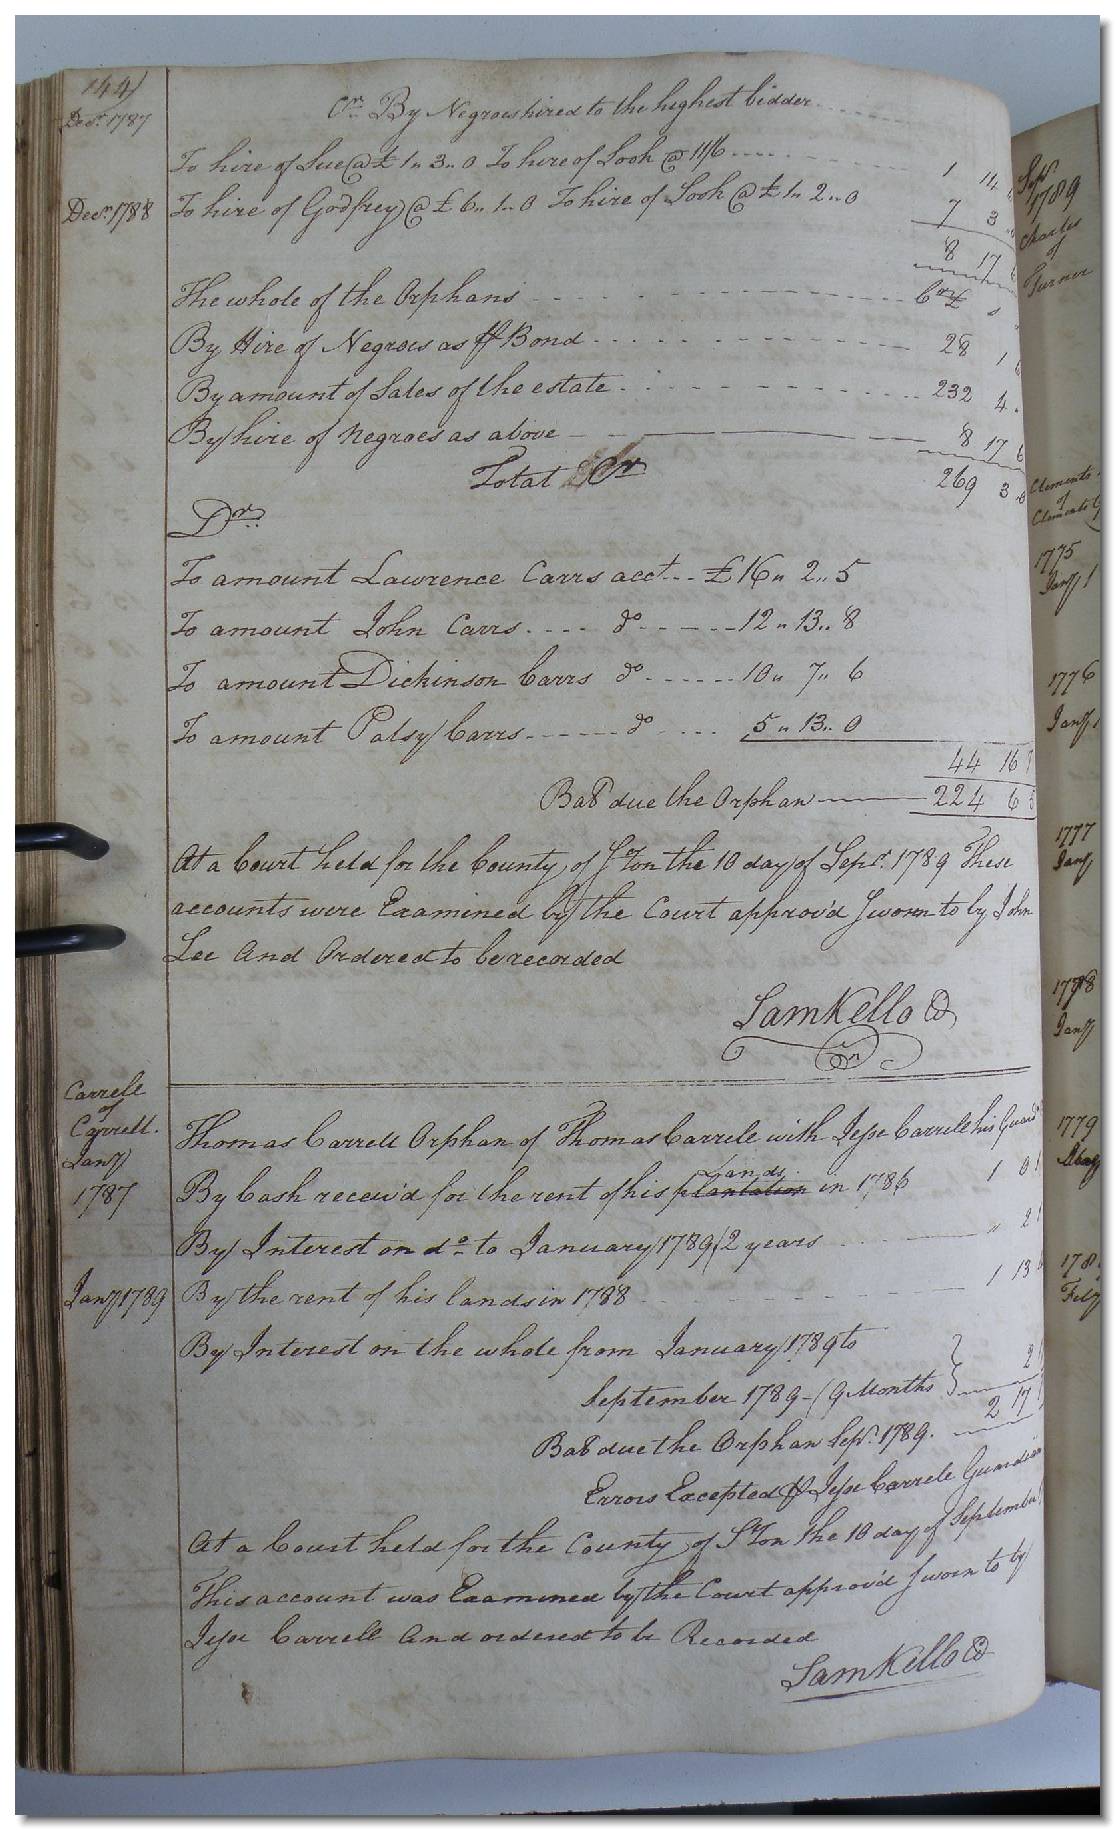 144)
Decr. 1787
Cr. By Negroes hired to the highest bidder
To hire of Sue @ £ 1,, 3,, 0 To hire of Sook @ 11/6 1 14
Decr. 1788 To hire of Godfrey @ £ 6,, 1,, 0 To hire of Sook @ £ 1,, 2,, 0 7 3
8 17
The whole of the Orphans Cr £ s
By Hire of Negroes as ⅌ Bond 28 1 6
By amount of Sales of the estate 232 4
By hire of negroes as above 8 17 6
Total Cr 269 3
Dr.
To amount Lawrence Carrs acct. £ 16,, 2,, 5
To amount John Carrs do 12,, 13,, 8
To amount Dickinson Carrs do 10,, 7,, 6
To amount Patsy Carrs do 5,, 13,, 0
44 16
Bal due the Orphan 224 6 5
At a Court held for the County of S.ton the 10 day of Sepr. 1789 These
accounts were Examined by the Court approv'd Sworn to by John
Lee And Ordered to be recorded
Sam Kello Cl
Cur
Carrell
of
Carrell.
Jany
1787
Thomas Carrell Orphan of Thomas Carrele with Jesse Carrele his Guard
By Cash receiv'd for the rent of his plantation Lands in 1786 1 0
By Interest on do to January 1789 (2 years ,, 2
Jany 1789 By the rent of his lands in 1788 1 13
By Interest on the whole from January 1789 to
September 1789 - (9 Months } 2
Bal due the Orphan Sepr. 1789. 2 17
Errors Excepted ⅌ Jesse Carrele Guardian
At a Court held for the County of S.ton the 10 day of September
This account was Examined by the Court approv'd Sworn to by
Jesse Carrell And ordered to be Recorded
Sam Kello Cl
Sepr.
1789
Charles
of
Turner
Clements
of
Clements
1775
Jany 1
1776
Jany 1
1777
Jany
1778
Jany
1779
178
Feby